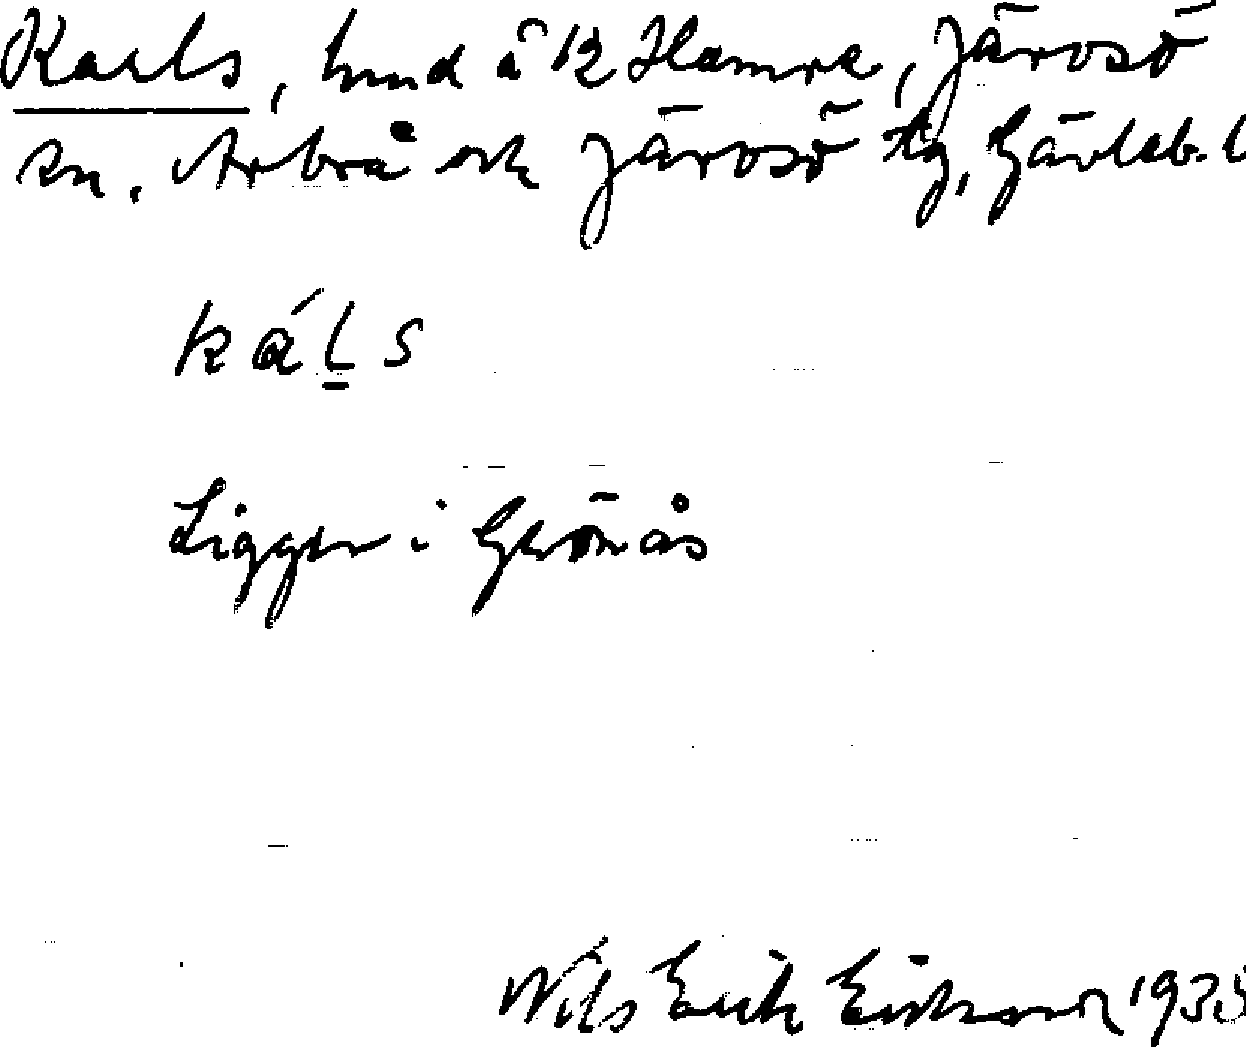 Karls, hmd å 12 Hamre, Järvsö
sn. Arbrå och Järvsö tg, Gävleb. l
káḻs
Ligger i Grönås
Nils Erik Eriksson 1935